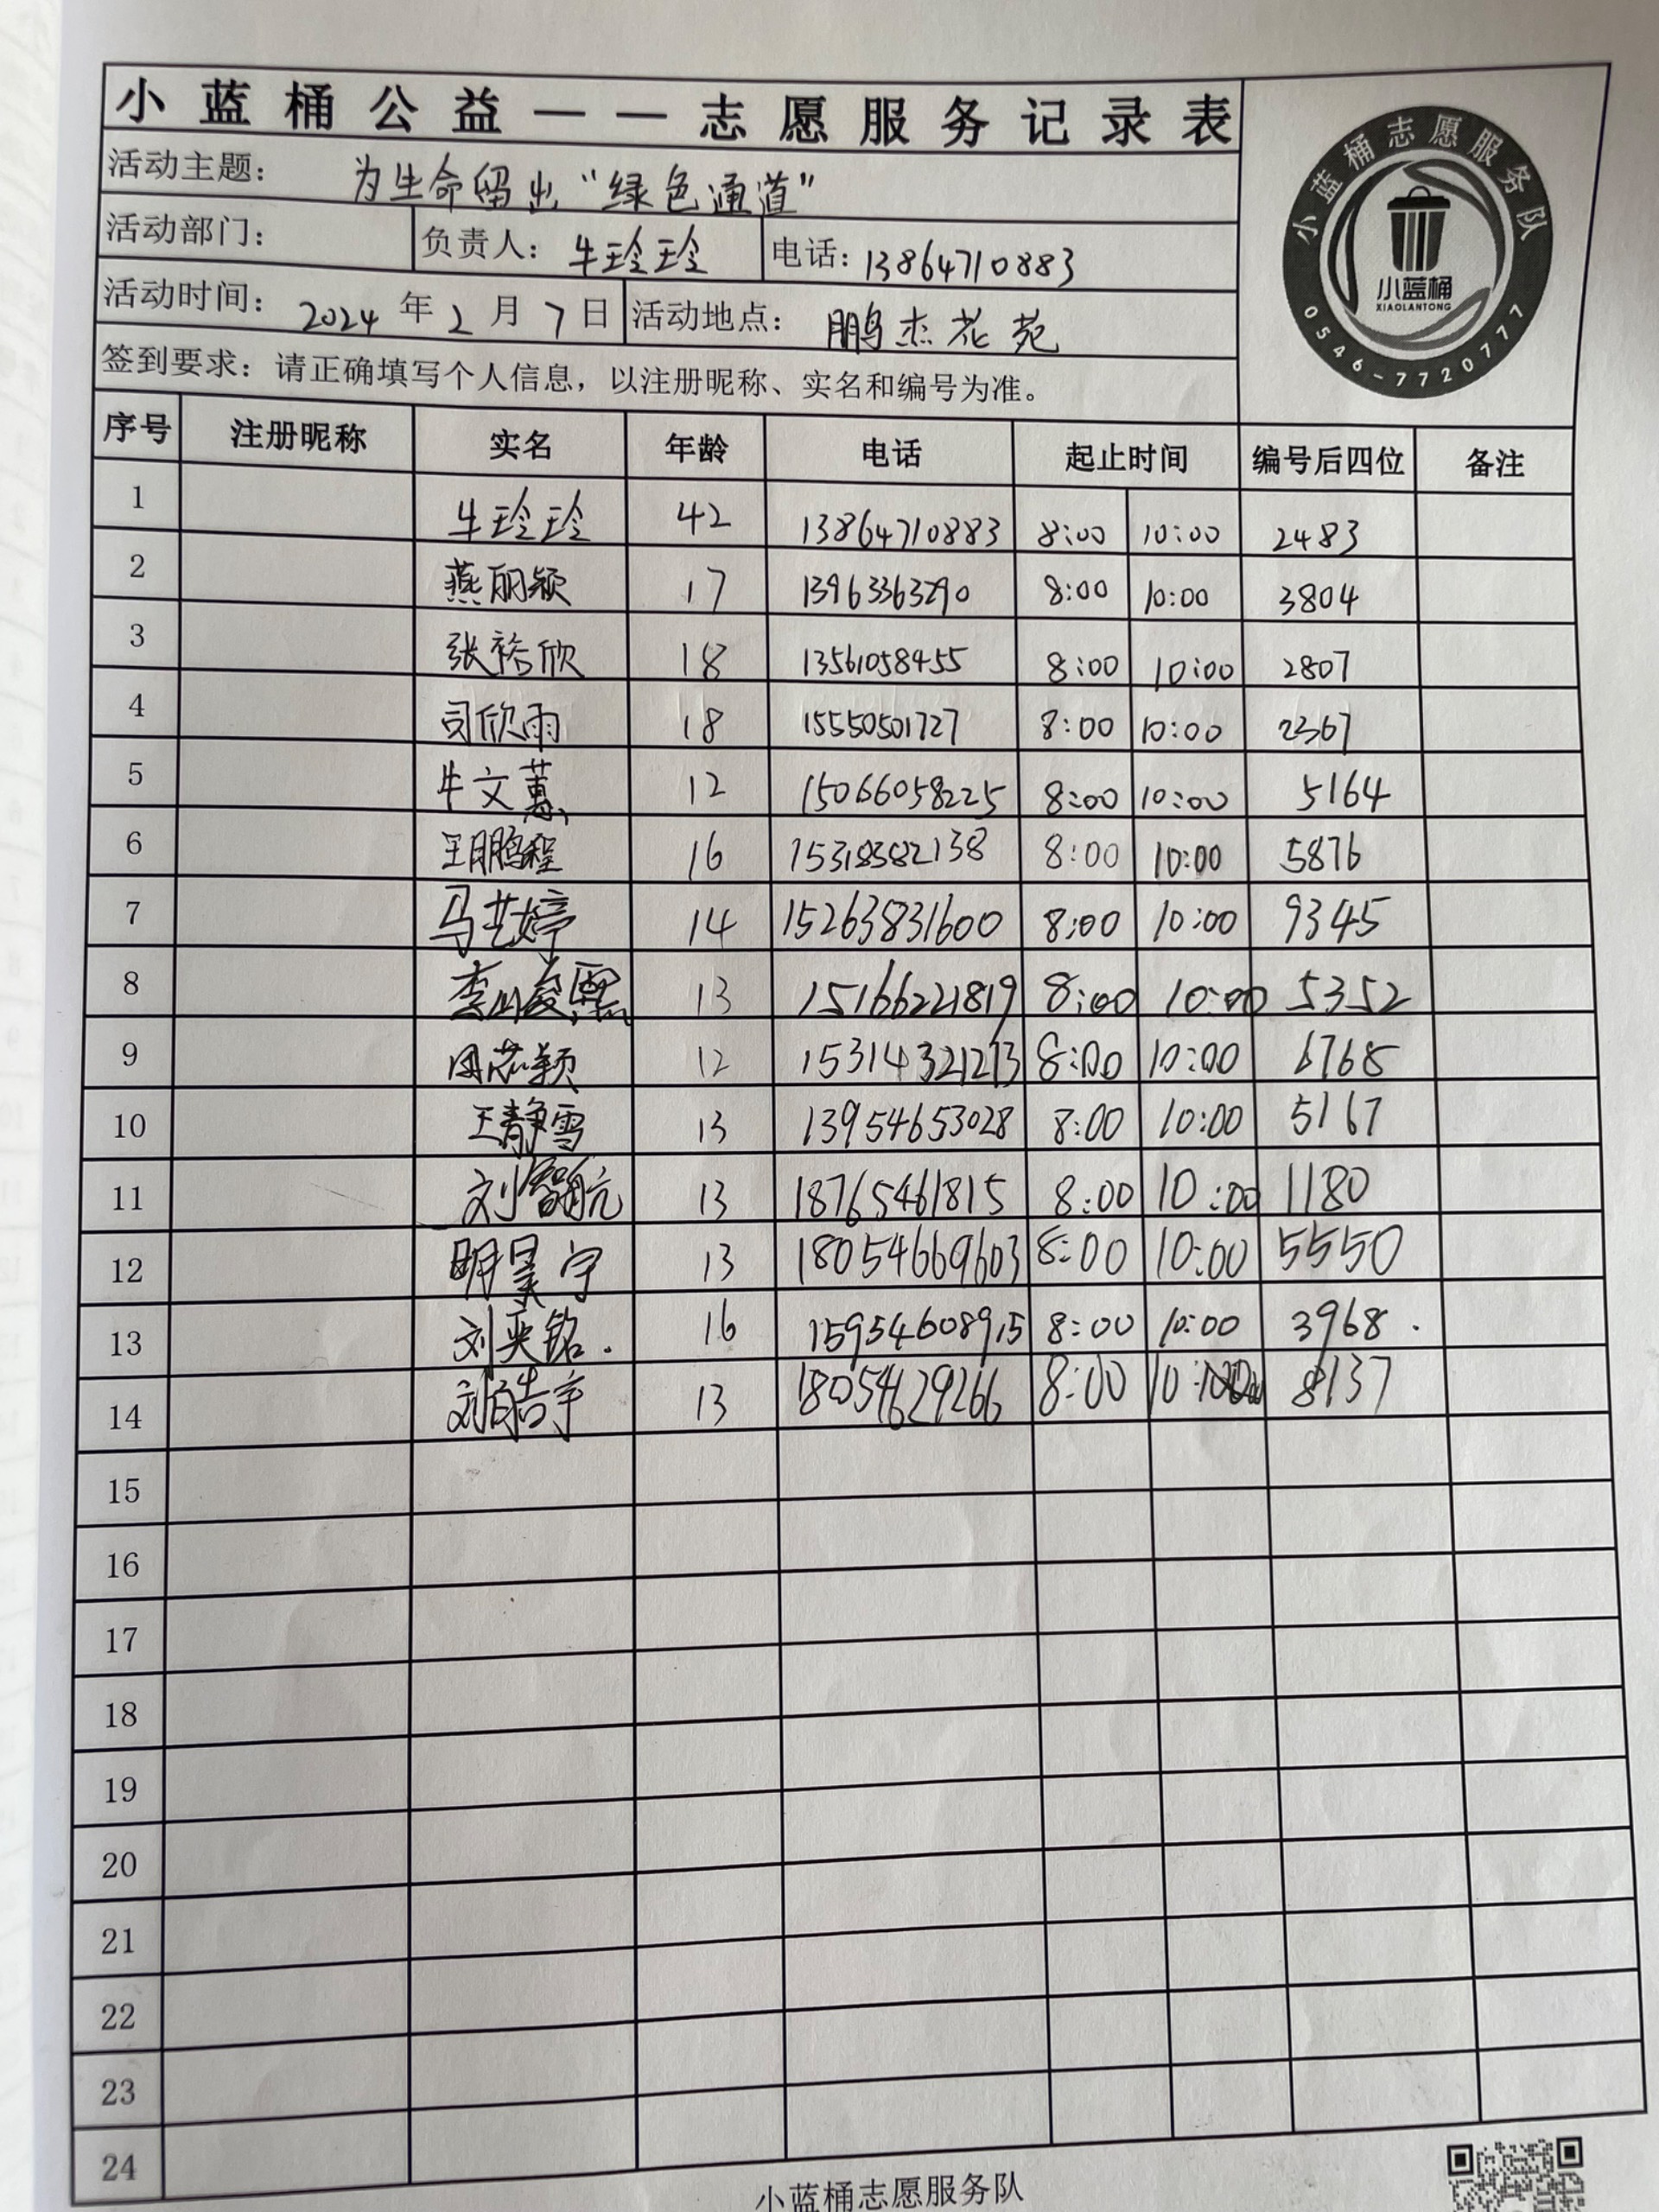 小蓝桶公益——志愿服务记录表
小蓝桶志愿服务队
小蓝桶
XIAOLANTONG
0546-7720777
活动主题： 为生命留出“绿色通道”
活动部门： 负责人：牛玲玲 电话：13864710883
活动时间：2024年2月7日 活动地点：鹏杰花苑
签到要求：请正确填写个人信息，以注册昵称、实名和编号为准。
序号 注册昵称 实名 年龄 电话 起止时间 编号后四位 备注
1 牛玲玲 42 13864710883 8:00 10:00 2483
2 燕丽颖 17 13963363290 8:00 10:00 3804
3 张裕欣 18 13561058455 8:00 10:00 2807
4 司欣雨 18 15550501727 8:00 10:00 2367
5 牛文慧 12 15066058225 8:00 10:00 5164
6 王鹏程 16 15318382138 8:00 10:00 5876
7 马艺婷 14 15263831600 8:00 10:00 9345
8 13 15166221819 8:00 10:00 5352
9 周芯颖 12 15314321273 8:00 10:00 6768
10 王静雪 13 13954653028 8:00 10:00 5167
11 刘智航 13 18765461815 8:00 10:00 1180
12 明昊宇 13 18054669603 8:00 10:00 5550
13 刘奕铭. 16 15954608915 8:00 10:00 3968.
14 刘皓宇 13 18054629266 8:00 8137
15
16
17
18
19
20
21
22
23
24
小蓝桶志愿服务队